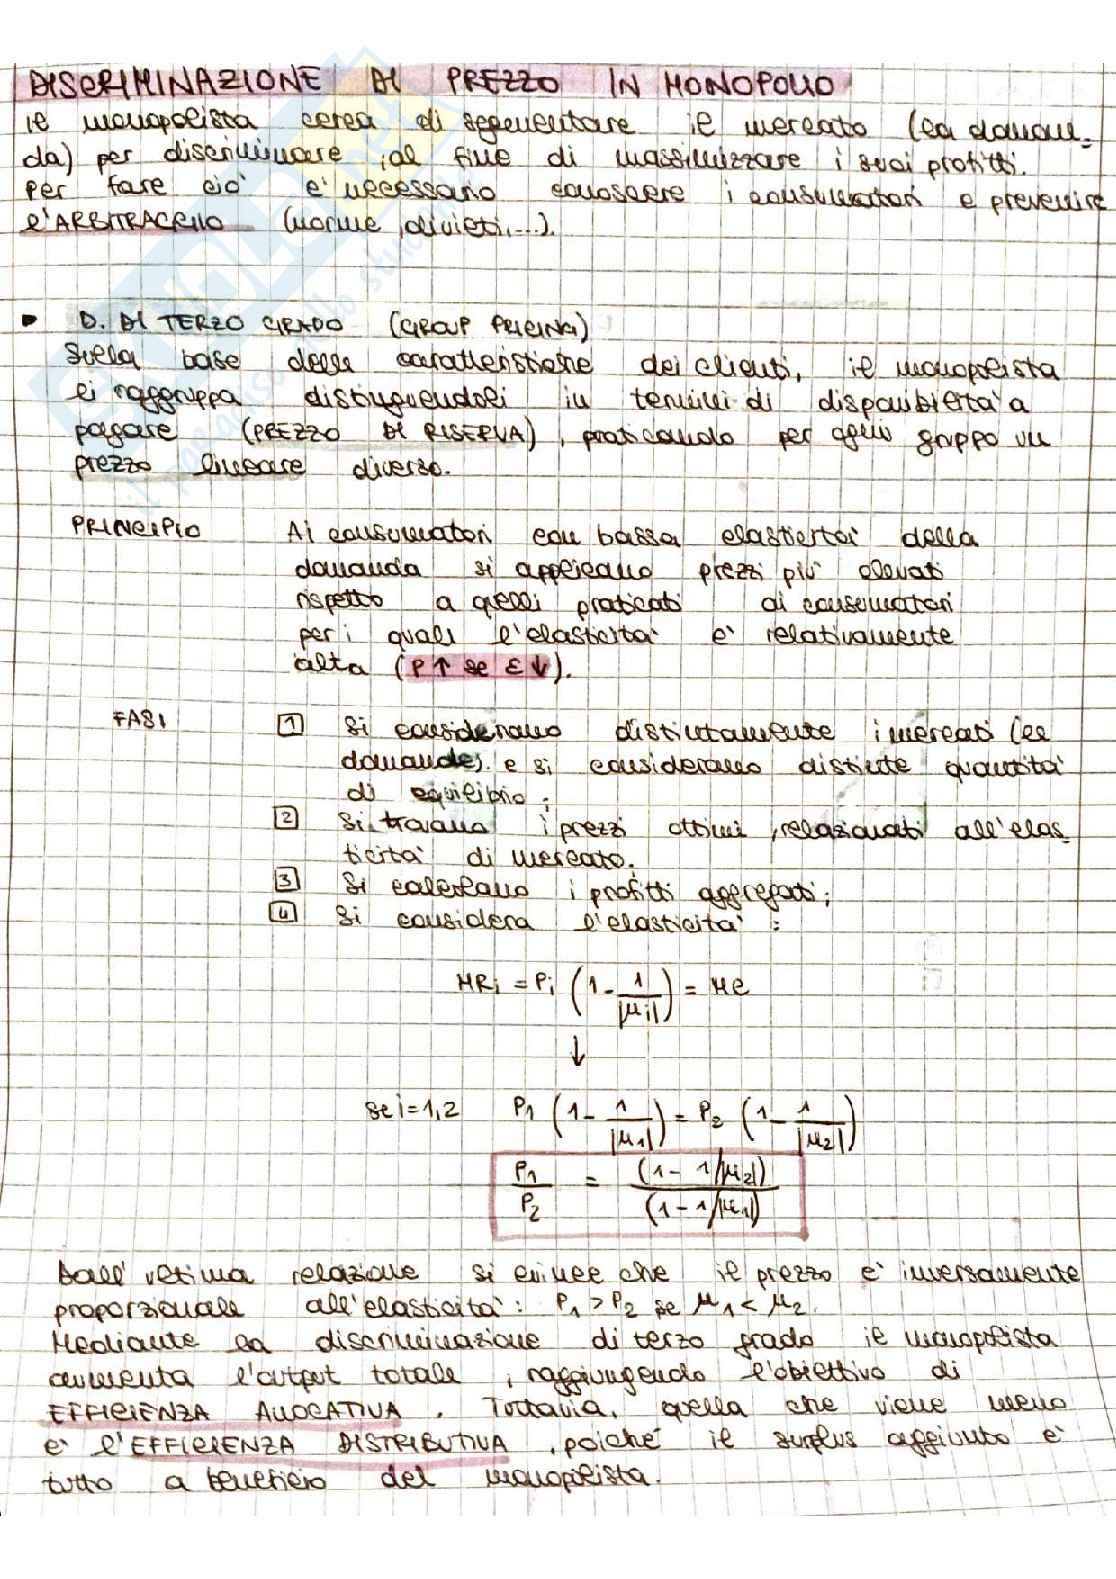 DISCRIMINAZIONE DI PREZZO IN MONOPOLIO
il monopolista cerca di segmentare il mercato (la doman-
da) per discriminare, al fine di massimizzare i suoi profitti.
Per fare ciò è necessario conoscere i consumatori e prevenire
l'ARBITRAGGIO (norme, divieti,...).
▸ D. DI TERZO GRADO (GROUP PRICING)
Sulla base delle caratteristiche dei clienti, il monopolista
li raggruppa distinguendoli in termini di disponibilità a
pagare (PREZZO DI RISERVA), praticando per ogni gruppo un
prezzo lineare diverso.
PRINCIPIO Ai consumatori con bassa elasticità della
domanda si applicano prezzi più elevati
rispetto a quelli praticati ai consumatori
per i quali l'elasticità è relativamente
alta (P↑ se ε↓).
FASI 1 Si considerano distintamente i mercati (le
domande) e si considerano distinte quantità
di equilibrio;
2 Si trovano i prezzi ottimi, relazionati all'elas-
ticità di mercato.
3 Si calcolano i profitti aggregati;
4 Si considera l'elasticità:
MRi = Pi (1 - 1/|μi|) = MC
↓
se i=1,2 P1 (1 - 1/|μ1|) = P2 (1 - 1/|μ2|)
P1/P2 = (1 - 1/|μ2|)/(1 - 1/|μ1|)
Dall'ultima relazione si evince che il prezzo è inversamente
proporzionale all'elasticità: P1 > P2 se μ1 < μ2.
Mediante la discriminazione di terzo grado il monopolista
aumenta l'output totale, raggiungendo l'obiettivo di
EFFICIENZA ALLOCATIVA. Tuttavia, quella che viene meno
è l'EFFICIENZA DISTRIBUTIVA, poiché il surplus aggiunto è
tutto a beneficio del monopolista.